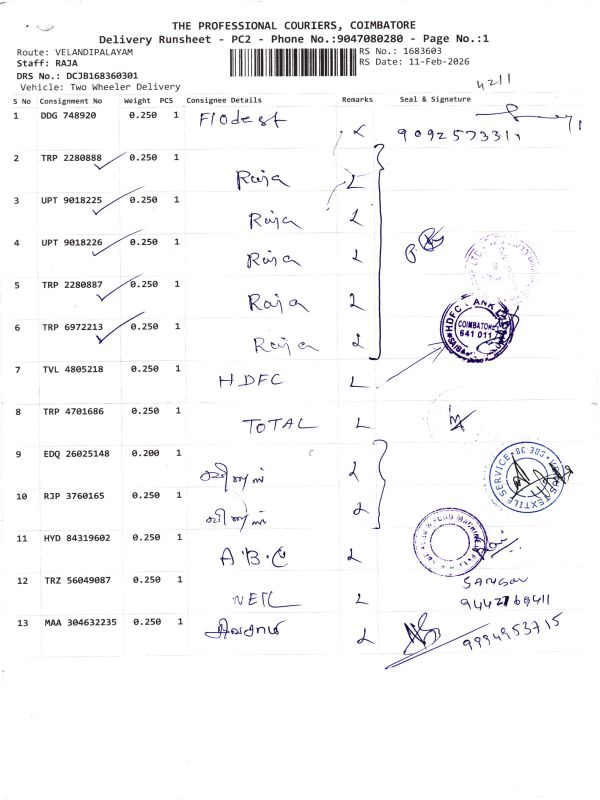 THE PROFESSIONAL COURIERS, COIMBATORE
Delivery Runsheet - PC2 - Phone No.:9047080280 - Page No.:1
Route: VELANDIPALAYAM RS No.: 1683603
Staff: RAJA RS Date: 11-Feb-2026
DRS No.: DCJB168360301
Vehicle: Two Wheeler Delivery
4211
S No Consignment No Weight PCS Consignee Details Remarks Seal & Signature
1 DDG 748920 0.250 1 Flodest L
9092573311
2 TRP 2280888 0.250 1 Raja L
3 UPT 9018225 0.250 1 Raja L
4 UPT 9018226 0.250 1 Raja L
5 TRP 2280887 0.250 1 Raja L
6 TRP 6972213 0.250 1 Raja L
HDFC BANK
COIMBATORE
641 011
7 TVL 4805218 0.250 1 HDFC L
8 TRP 4701686 0.250 1 TOTAL L
9 EDQ 26025148 0.200 1 L
TEXTILE SERVICE CBE 38
10 RJP 3760165 0.250 1 L
11 HYD 84319602 0.250 1 A.B.C L
12 TRZ 56049087 0.250 1 L
9442769411
13 MAA 304632235 0.250 1 சிவசாமி L
9994953715